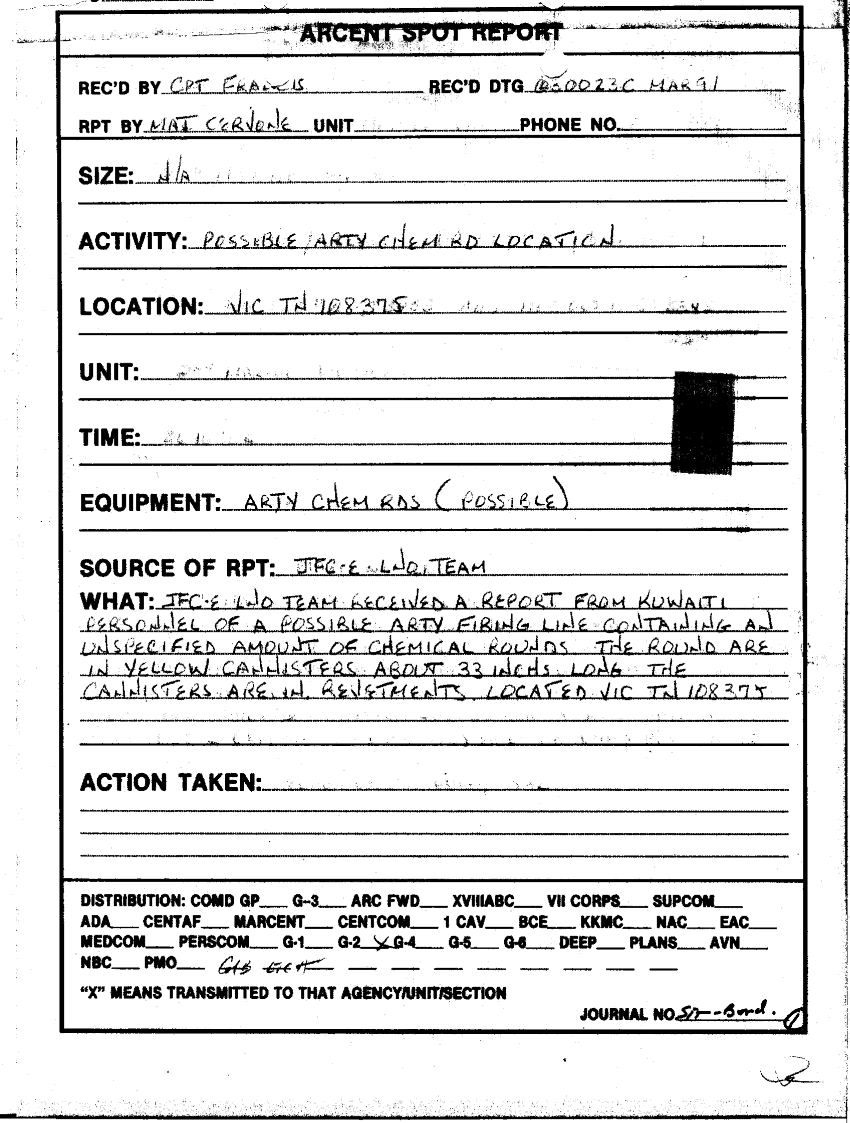 ARCENT SPOT REPORT
REC'D BY CPT FRANCIS REC'D DTG 0023C MAR 91
RPT BY MAJ CERVONE UNIT PHONE NO.
SIZE: N/A
ACTIVITY: POSSIBLE ARTY CHEM RD LOCATION
LOCATION: VIC TN 108375
UNIT:
TIME:
EQUIPMENT: ARTY CHEM RDS (POSSIBLE)
SOURCE OF RPT: JFC-E LNO TEAM
WHAT: JFC-E LNO TEAM RECEIVED A REPORT FROM KUWAITI
PERSONNEL OF A POSSIBLE ARTY FIRING LINE CONTAINING AN
UNSPECIFIED AMOUNT OF CHEMICAL ROUNDS. THE ROUND ARE
IN YELLOW CANNISTERS ABOUT 33 INCHS LONG THE
CANNISTERS ARE IN REVETMENTS LOCATED VIC TN 108375
ACTION TAKEN:
DISTRIBUTION: COMD GP___ G-3___ ARC FWD___ XVIIIABC___ VII CORPS___ SUPCOM___
ADA___ CENTAF___ MARCENT___ CENTCOM___ 1 CAV___ BCE___ KKMC___ NAC___ EAC___
MEDCOM___ PERSCOM___ G-1___ G-2 X G-4___ G-5___ G-6___ DEEP___ PLANS___ AVN___
NBC___ PMO___
"X" MEANS TRANSMITTED TO THAT AGENCY/UNIT/SECTION
JOURNAL NO. 1